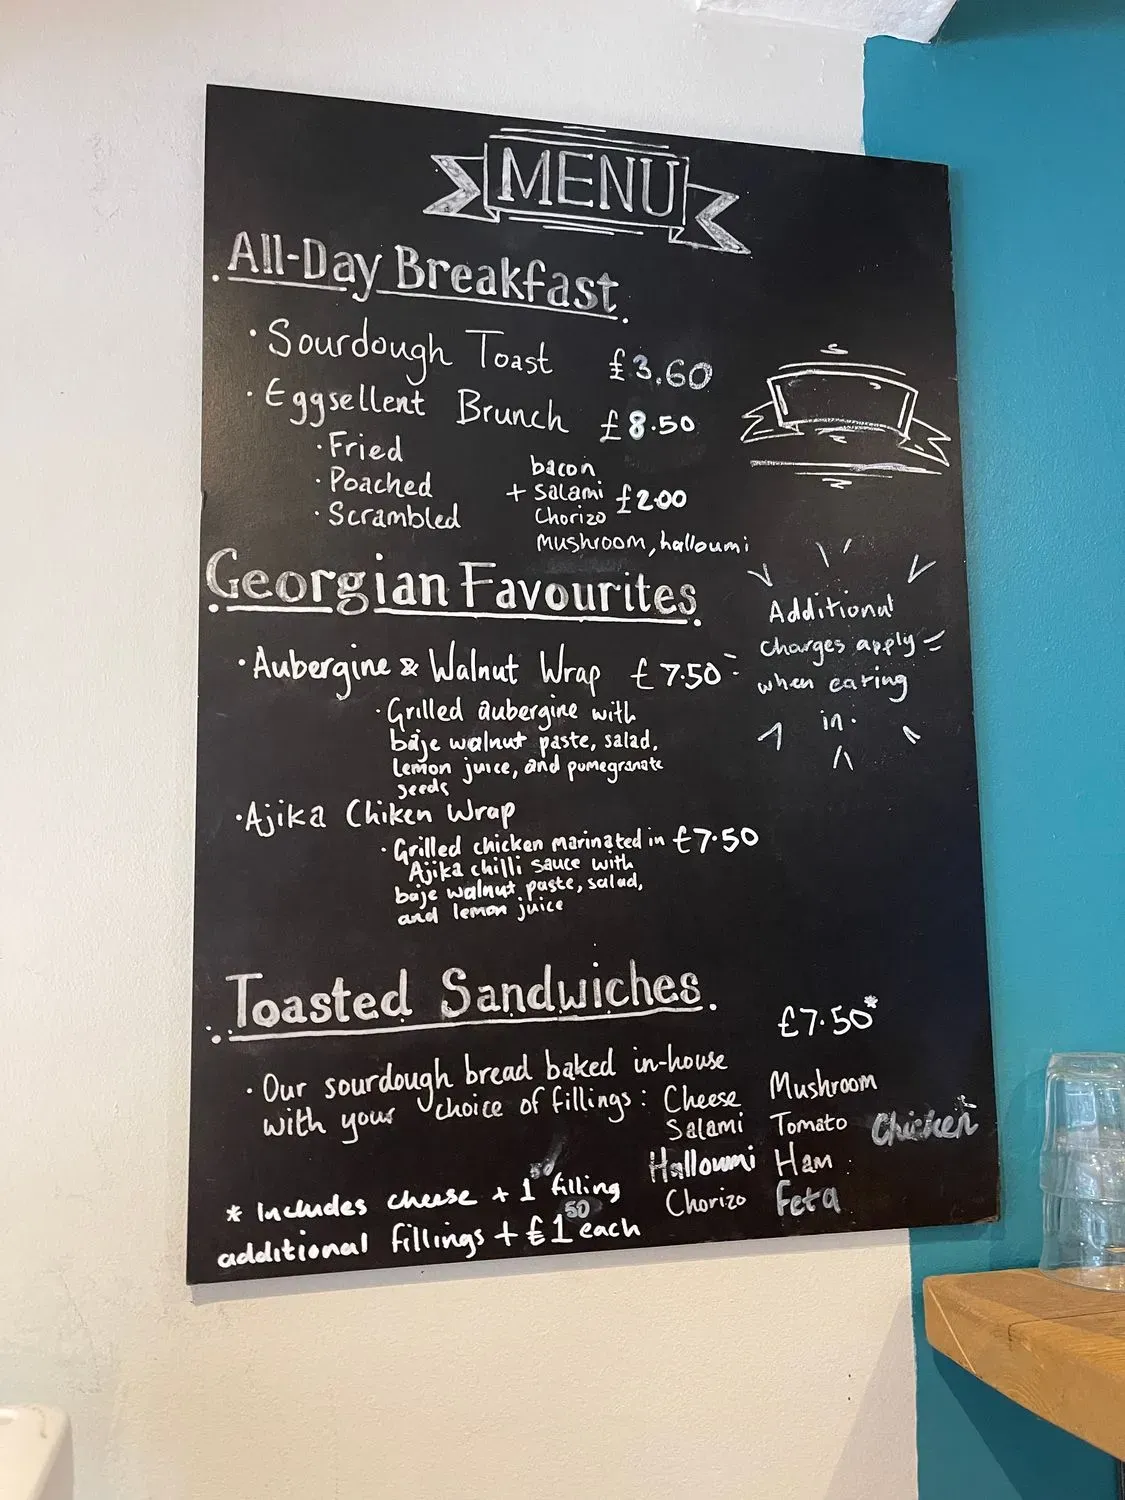 MENU
All-Day Breakfast
· Sourdough Toast £3.60
· Eggsellent Brunch £8.50
· Fried
· Poached
· Scrambled
bacon
+ Salami £2.00
Chorizo
mushroom, halloumi
Georgian Favourites
· Aubergine & Walnut Wrap £7.50
· Grilled aubergine with
baje walnut paste, salad,
lemon juice, and pomegranate
seeds
· Ajika Chiken Wrap
· Grilled chicken marinated in £7.50
Ajika chilli sauce with
baje walnut paste, salad,
and lemon juice
Additional
charges apply
when eating
in.
Toasted Sandwiches
£7.50*
· Our sourdough bread baked in-house
with your choice of fillings: Cheese Mushroom
Salami Tomato Chicken
Halloumi Ham
Chorizo Feta
* includes cheese + 1 filling
additional fillings + £1 50 each